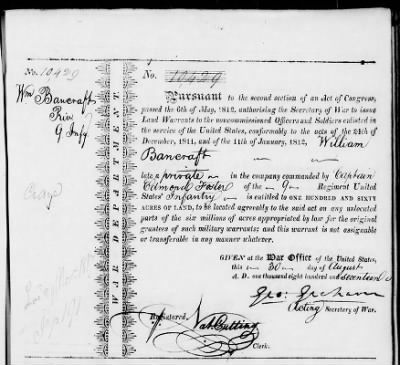 No. 10429
Wm Bancraft
Priv
9 Infy
WAR DEPARTMENT
No. 10429
Pursuant to the second section of an Act of Congress,
passed the 6th of May, 1812, authorising the Secretary of War to issue
Land Warrants to the noncommissioned Officers and Soldiers enlisted in
the service of the United States, conformably to the acts of the 24th of
December, 1811, and of the 11th of January, 1812, William
Bancraft
late a private in the company commanded by Captain
Edmond Foster of the 9 Regiment United
States' Infantry is entitled to ONE HUNDRED AND SIXTY
ACRES OF LAND, to be located agreeably to the said act on any unlocated
parts of the six millions of acres appropriated by law for the original
grantees of such military warrants; and this warrant is not assignable
or transferable in any manner whatever.
GIVEN at the War Office of the United States,
this 30 day of August
A. D. one thousand eight hundred and seventeen
Geo: Graham
Acting Secretary of War.
Registered,
Nat. Cutting
Clerk.